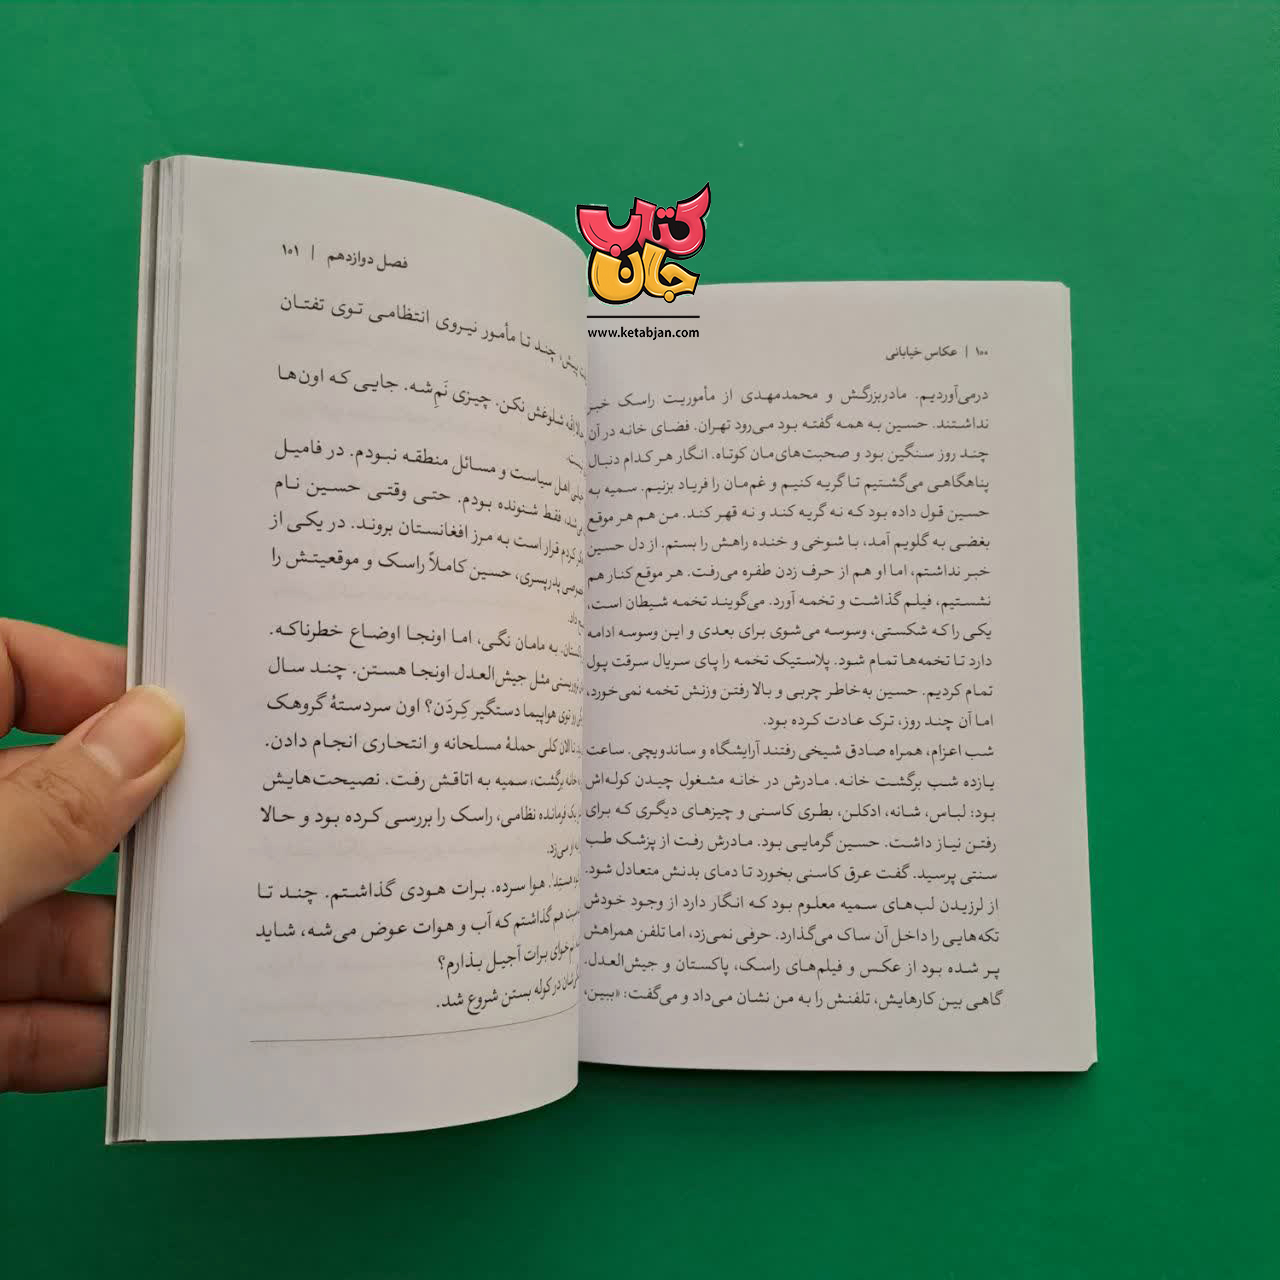 کتاب
جان
www.ketabjan.com
۱۰۰ | عکاس خیابانی
درمی‌آوردیم. مادربزرگش و محمدمهدی از مأموریت راسک خبر
نداشتند. حسین به همه گفته بود می‌رود تهران. فضای خانه در آن
چند روز سنگین بود و صحبت‌های‌مان کوتاه. انگار هر کدام دنبال
پناهگاهی می‌گشتیم تا گریه کنیم و غم‌مان را فریاد بزنیم. سمیه به
حسین قول داده بود که نه گریه کند و نه قهر کند. من هم هر موقع
بغضی به گلویم آمد، با شوخی و خنده راهش را بستم. از دل حسین
خبر نداشتم، اما او هم از حرف زدن طفره می‌رفت. هر موقع کنار هم
نشستیم، فیلم گذاشت و تخمه آورد. می‌گویند تخمه شیطان است،
یکی را که شکستی، وسوسه می‌شوی برای بعدی و این وسوسه ادامه
دارد تا تخمه‌ها تمام شود. پلاستیک تخمه را پای سریال سرقت پول
تمام کردیم. حسین به‌خاطر چربی و بالا رفتن وزنش تخمه نمی‌خورد،
اما آن چند روز، ترک عادت کرده بود.
شب اعزام، همراه صادق شیخی رفتند آرایشگاه و ساندویچی. ساعت
یازده شب برگشت خانه. مادرش در خانه مشغول چیدن کوله‌اش
بود: لباس، شانه، ادکلن، بطری کاسنی و چیزهای دیگری که برای
رفتن نیاز داشت. حسین گرمایی بود. مادرش رفت از پزشک طب
سنتی پرسید. گفت عرق کاسنی بخورد تا دمای بدنش متعادل شود.
از لرزیدن لب‌های سمیه معلوم بود که انگار دارد از وجود خودش
تکه‌هایی را داخل آن ساک می‌گذارد. حرفی نمی‌زد، اما تلفن همراهش
پر شده بود از عکس و فیلم‌های راسک، پاکستان و جیش‌العدل.
گاهی بین کارهایش، تلفنش را به من نشان می‌داد و می‌گفت: «ببین،
فصل دوازدهم | ۱۰۱
پیش، چند تا مأمور نیروی انتظامی توی تفتان
شلوغش نکن. چیزی نَمِ‌شه. جایی که اون‌ها
اهل سیاست و مسائل منطقه نبودم. در فامیل
فقط شنونده بودم. حتی وقتی حسین نام
کردم قرار است به مرز افغانستان بروند. در یکی از
پدرپسری، حسین کاملاً راسک و موقعیتش را
داد.
به مامان نگی، اما اونجا اوضاع خطرناکه.
تروریستی مثل جیش‌العدل اونجا هستن. چند سال
توی هواپیما دستگیر کِردَن؟ اون سردستهٔ گروهک
تا الان کلی حملهٔ مسلحانه و انتحاری انجام دادن.
خانه برگشت، سمیه به اتاقش رفت. نصیحت‌هایش
یک فرمانده نظامی، راسک را بررسی کرده بود و حالا
می‌زد.
هوا سرده. برات هودی گذاشتم. چند تا
هم گذاشتم که آب و هوات عوض می‌شه، شاید
برات آجیل بذارم؟
در کوله بستن شروع شد.